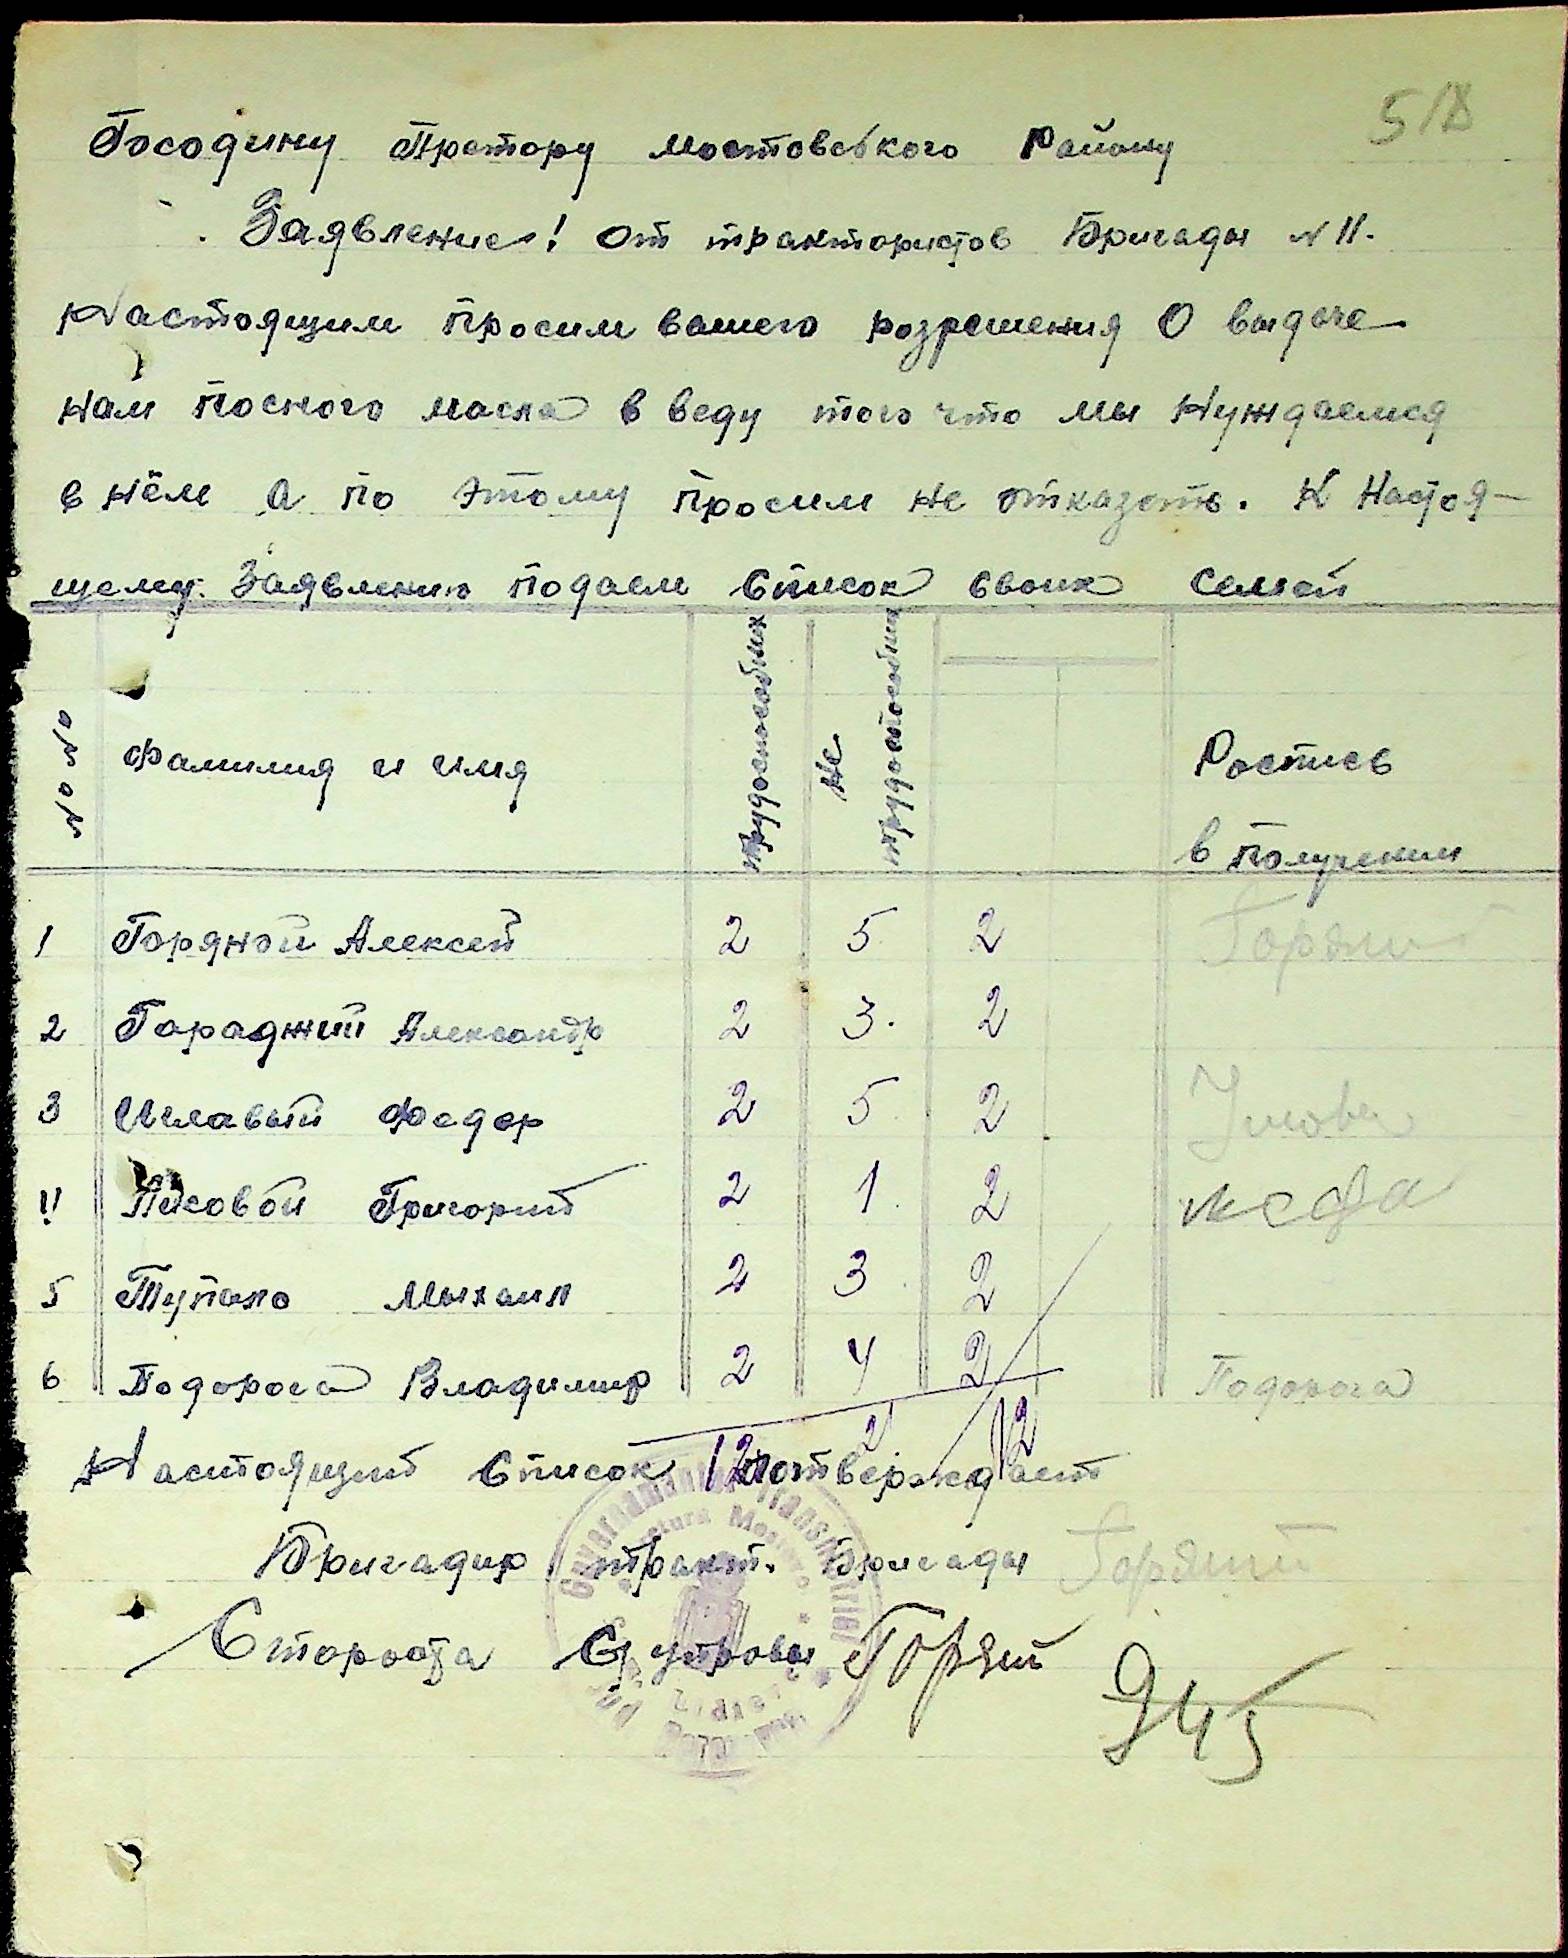 518
Госодину Претору мостовського Району
Заявление! от трактористов Бригады № 11.
Настоящим просим вашего розрешения О выдаче
нам посного масла в веду того что мы нуждаемся
в нём а по этому просим не отказать. К Настоя-
щему Заявлению подаем список своих семей
№ № Фамилия и имя трудоспособных не трудоспособных Роспись
в получении
1 Горяной Алексей 2 5 2
2 Гораджий Александр 2 3. 2
3 Иглавый Федор 2 5 2
4 Писовой Григорий 2 1 2
5 Тупало Мыхаил 2 3 2
6 Подорога Владимир 2 4 2 Подорога
12 2 12
Настоящий список потверждает
Бригадир тракт. Бригады
Староста
Guvernământul Transnistriei
945